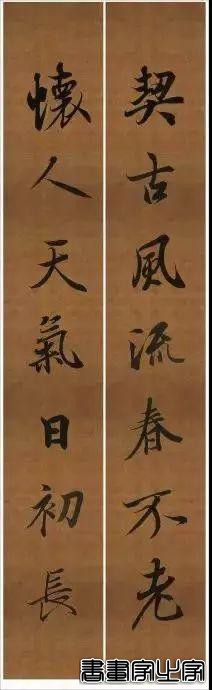 契古風流春不老
懷人天氣日初長
書畫家必字